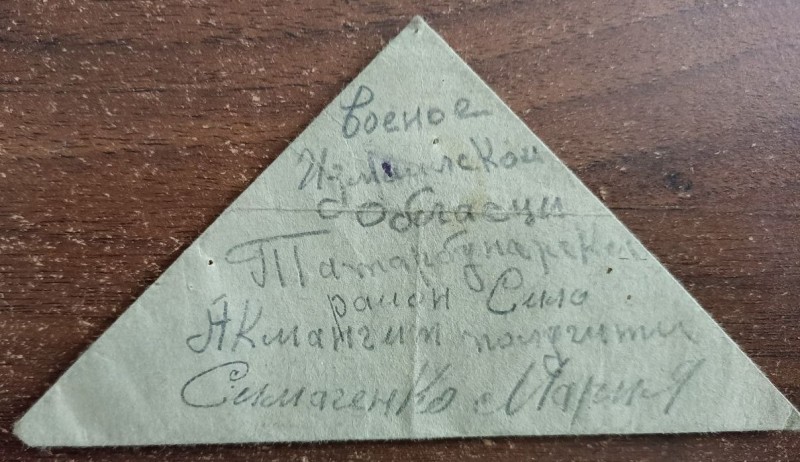 военое
Измаилской
области
Татарбунарской
район Село
Акмангит получити
Симаченко Мария